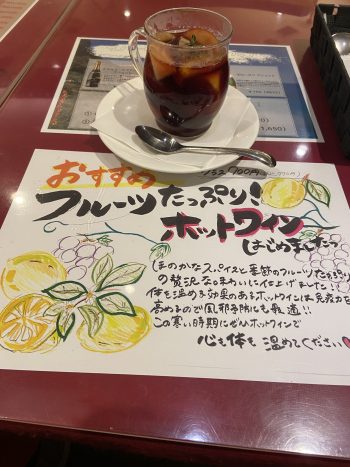 1,650)
おすすめ
フルーツたっぷり!
ホットワイン
はじめました
ほのかなスパイスと季節のフルーツたっぷり
の贅沢な味わいに仕上げました!!
体を温める効果のあるホットワインは免疫力を
高めるので風邪予防にも最適!!
この寒い時期にぜひホットワインで
心も体も温めてください